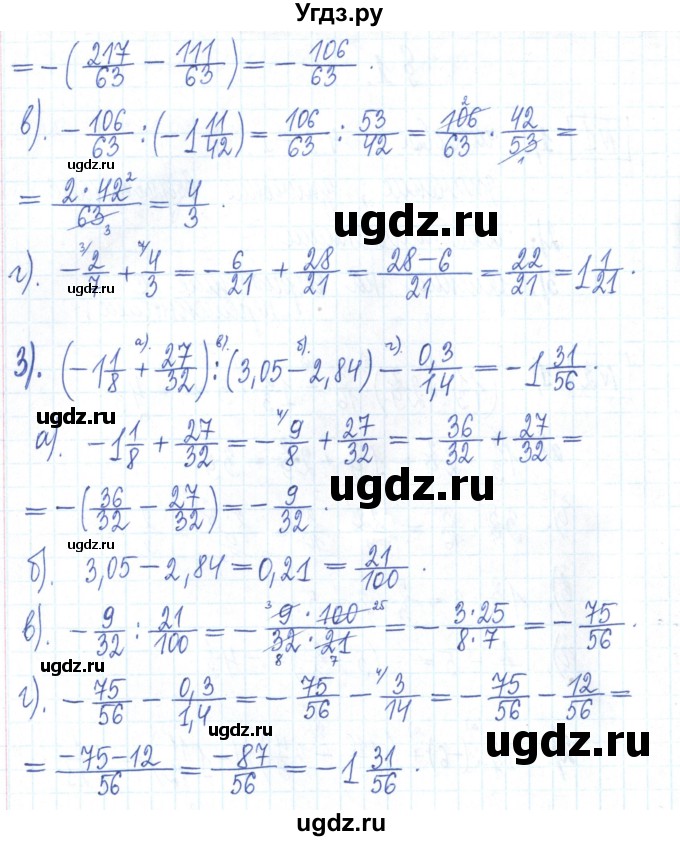 Угдз.ру
= -(217/63 - 111/63) = -106/63.
в). -106/63 : (-1 11/42) = 106/63 : 53/42 = 106/63 · 42/53 =
ugdz.ru
= 2·42/63 = 4/3.
ugdz.ru
г). -2/7 + 4/3 = -6/21 + 28/21 = (28-6)/21 = 22/21 = 1 1/21.
ugdz.ru
3). (-1 1/8 + 27/32) : (3,05 - 2,84) - 0,3/1,4 = -1 31/56.
ugdz.ru
а). -1 1/8 + 27/32 = -9/8 + 27/32 = -36/32 + 27/32 =
ugdz.ru
= -(36/32 - 27/32) = -9/32.
ugdz.ru
б). 3,05 - 2,84 = 0,21 = 21/100.
в). -9/32 : 21/100 = -9·100/32·21 = -3·25/8·7 = -75/56.
ugdz.ru
г). -75/56 - 0,3/1,4 = -75/56 - 3/14 = -75/56 - 12/56 =
ugdz.ru
ugdz.ru
= (-75-12)/56 = -87/56 = -1 31/56.
ugdz.ru
ugdz.ru